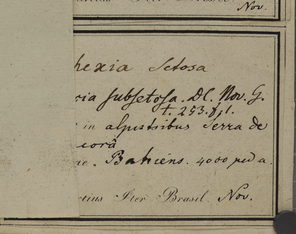 Nov.
hexia Setosa
cia subsetosa. DC. Nov. G.
t. 253. f. 1.
in alpestribus Serra de
corâ
Bahiens. 4000 ped a.
tius Iter Brasil. Nov.